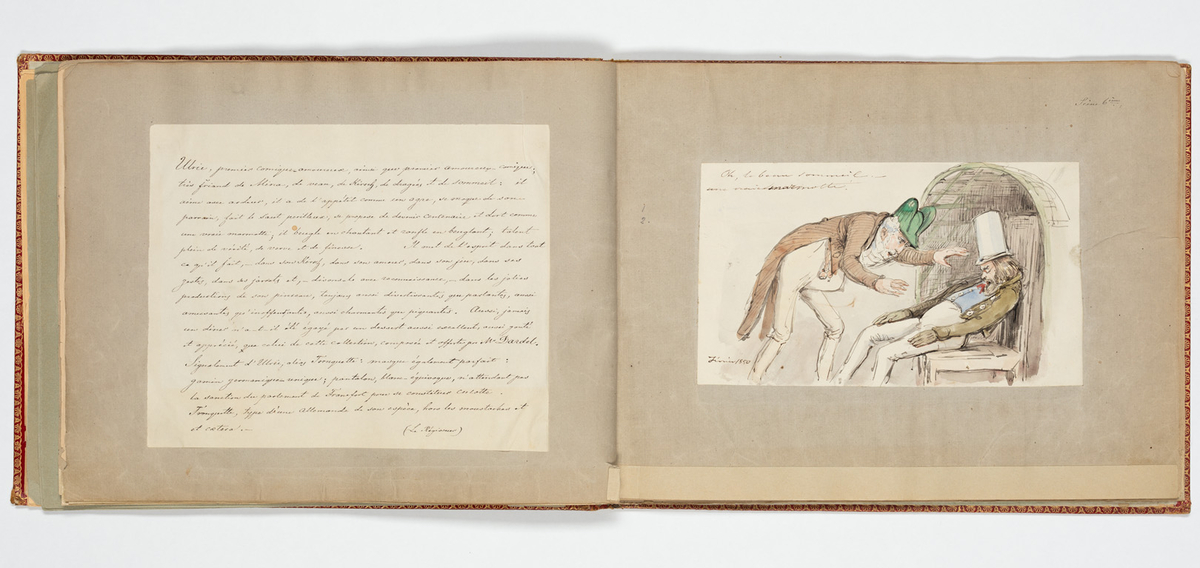 Ulric, premier comique amoureux, ainsi que premier amoureux comique;
très friand de Mena, de vers, de Kirsch, de dragées et de sommeil: il
aime avec ardeur, il a de l'appétit comme un ogre, se moque de son
parrain, fait le saut périlleux, se propose de devenir centenaire, et dort comme
une vraie marmotte; il beugle en chantant et ronfle en beuglant; talent
plein de vérité, de verve et de finesse. Il met de l'esprit dans tout
ce qu'il fait, — dans son Kirsch, dans son amour, dans son jeu, dans ses
gestes, dans ses jurons et, — disons-le avec reconnaissance, — dans les jolies
productions de son pinceau, toujours aussi divertissantes que parlantes, aussi
amusantes qu'inoffensantes, aussi charmantes que piquantes. Aussi, jamais
un dîner n'a-t-il été égayé par un dessert aussi excellent, aussi goûté
et apprécié, que celui de cette collection, composée et offerte par Mr Dardel.
Signalement d'Ulric, alias Fouquette: masque également parfait:
gamin germanique unique; pantalon blanc équivoque, n'attendant pas
la sanction du parlement de Francfort pour se constituer culotte.
Fouquette, type d'une Allemande de son espèce, hors les moustaches et
et cætera. —
(Le Régisseur)
Série 6me
Oh, le beau sommeil —
une vraie marmotte.
Février 1850